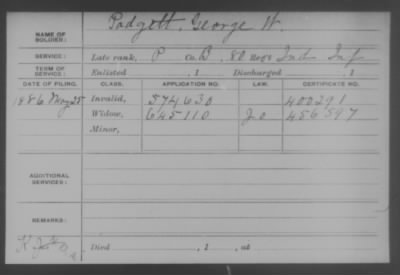 Padgett, George W.
NAME OF
SOLDIER:
SERVICE: Late rank, P Co. B, 80 Reg't Ind Inf
TERM OF
SERVICE: Enlisted , 1 Discharged , 1
DATE OF FILING. CLASS. APPLICATION NO. LAW. CERTIFICATE NO.
1886 May 25 Invalid, 574630 400291
Widow, 645110 456597
Minor,
ADDITIONAL
SERVICES:
REMARKS:
Died , 1 , at